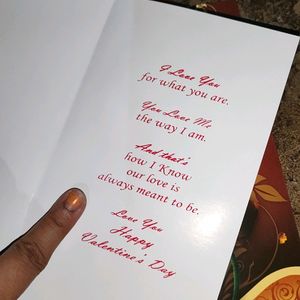 I Love You
for what you are.
You Love Me
the way I am.
And that's
how I Know
our love is
always meant to be.
Love You
Happy
Valentine's Day